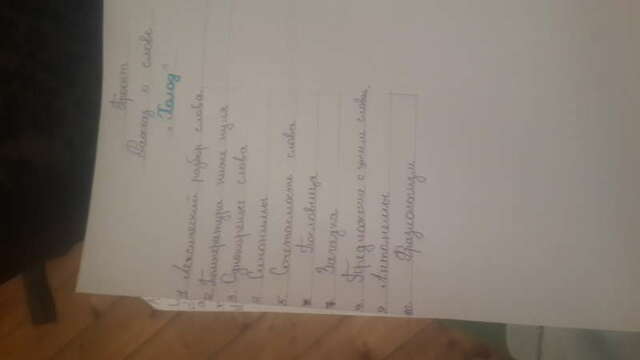 Проект
Рассказ о слове
"Холод"
1. Лексический разбор слова.
2. Температура ниже нуля
3. Однокоренные слова
4. Синонимы
5. Сочетаемость слова
6. Пословица
7. Загадка
8. Предложение с этим словом.
9. Антонимы
10. Фразиологизм